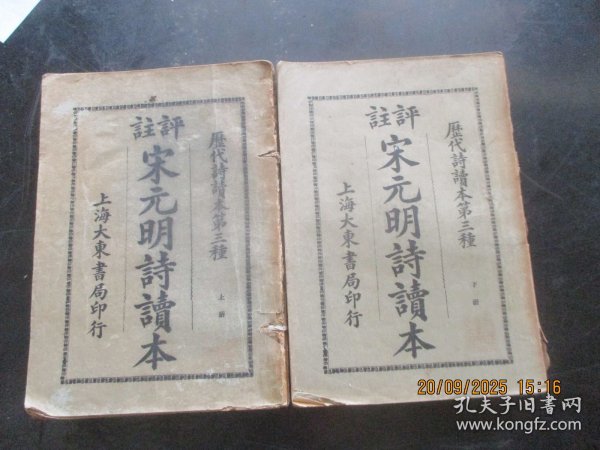 歷代詩讀本第三種
上册
評註
宋元明詩讀本
上海大東書局印行
歷代詩讀本第三種
下册
評註
宋元明詩讀本
上海大東書局印行
20/09/2025 15:16
孔夫子旧书网
www.kongfz.com